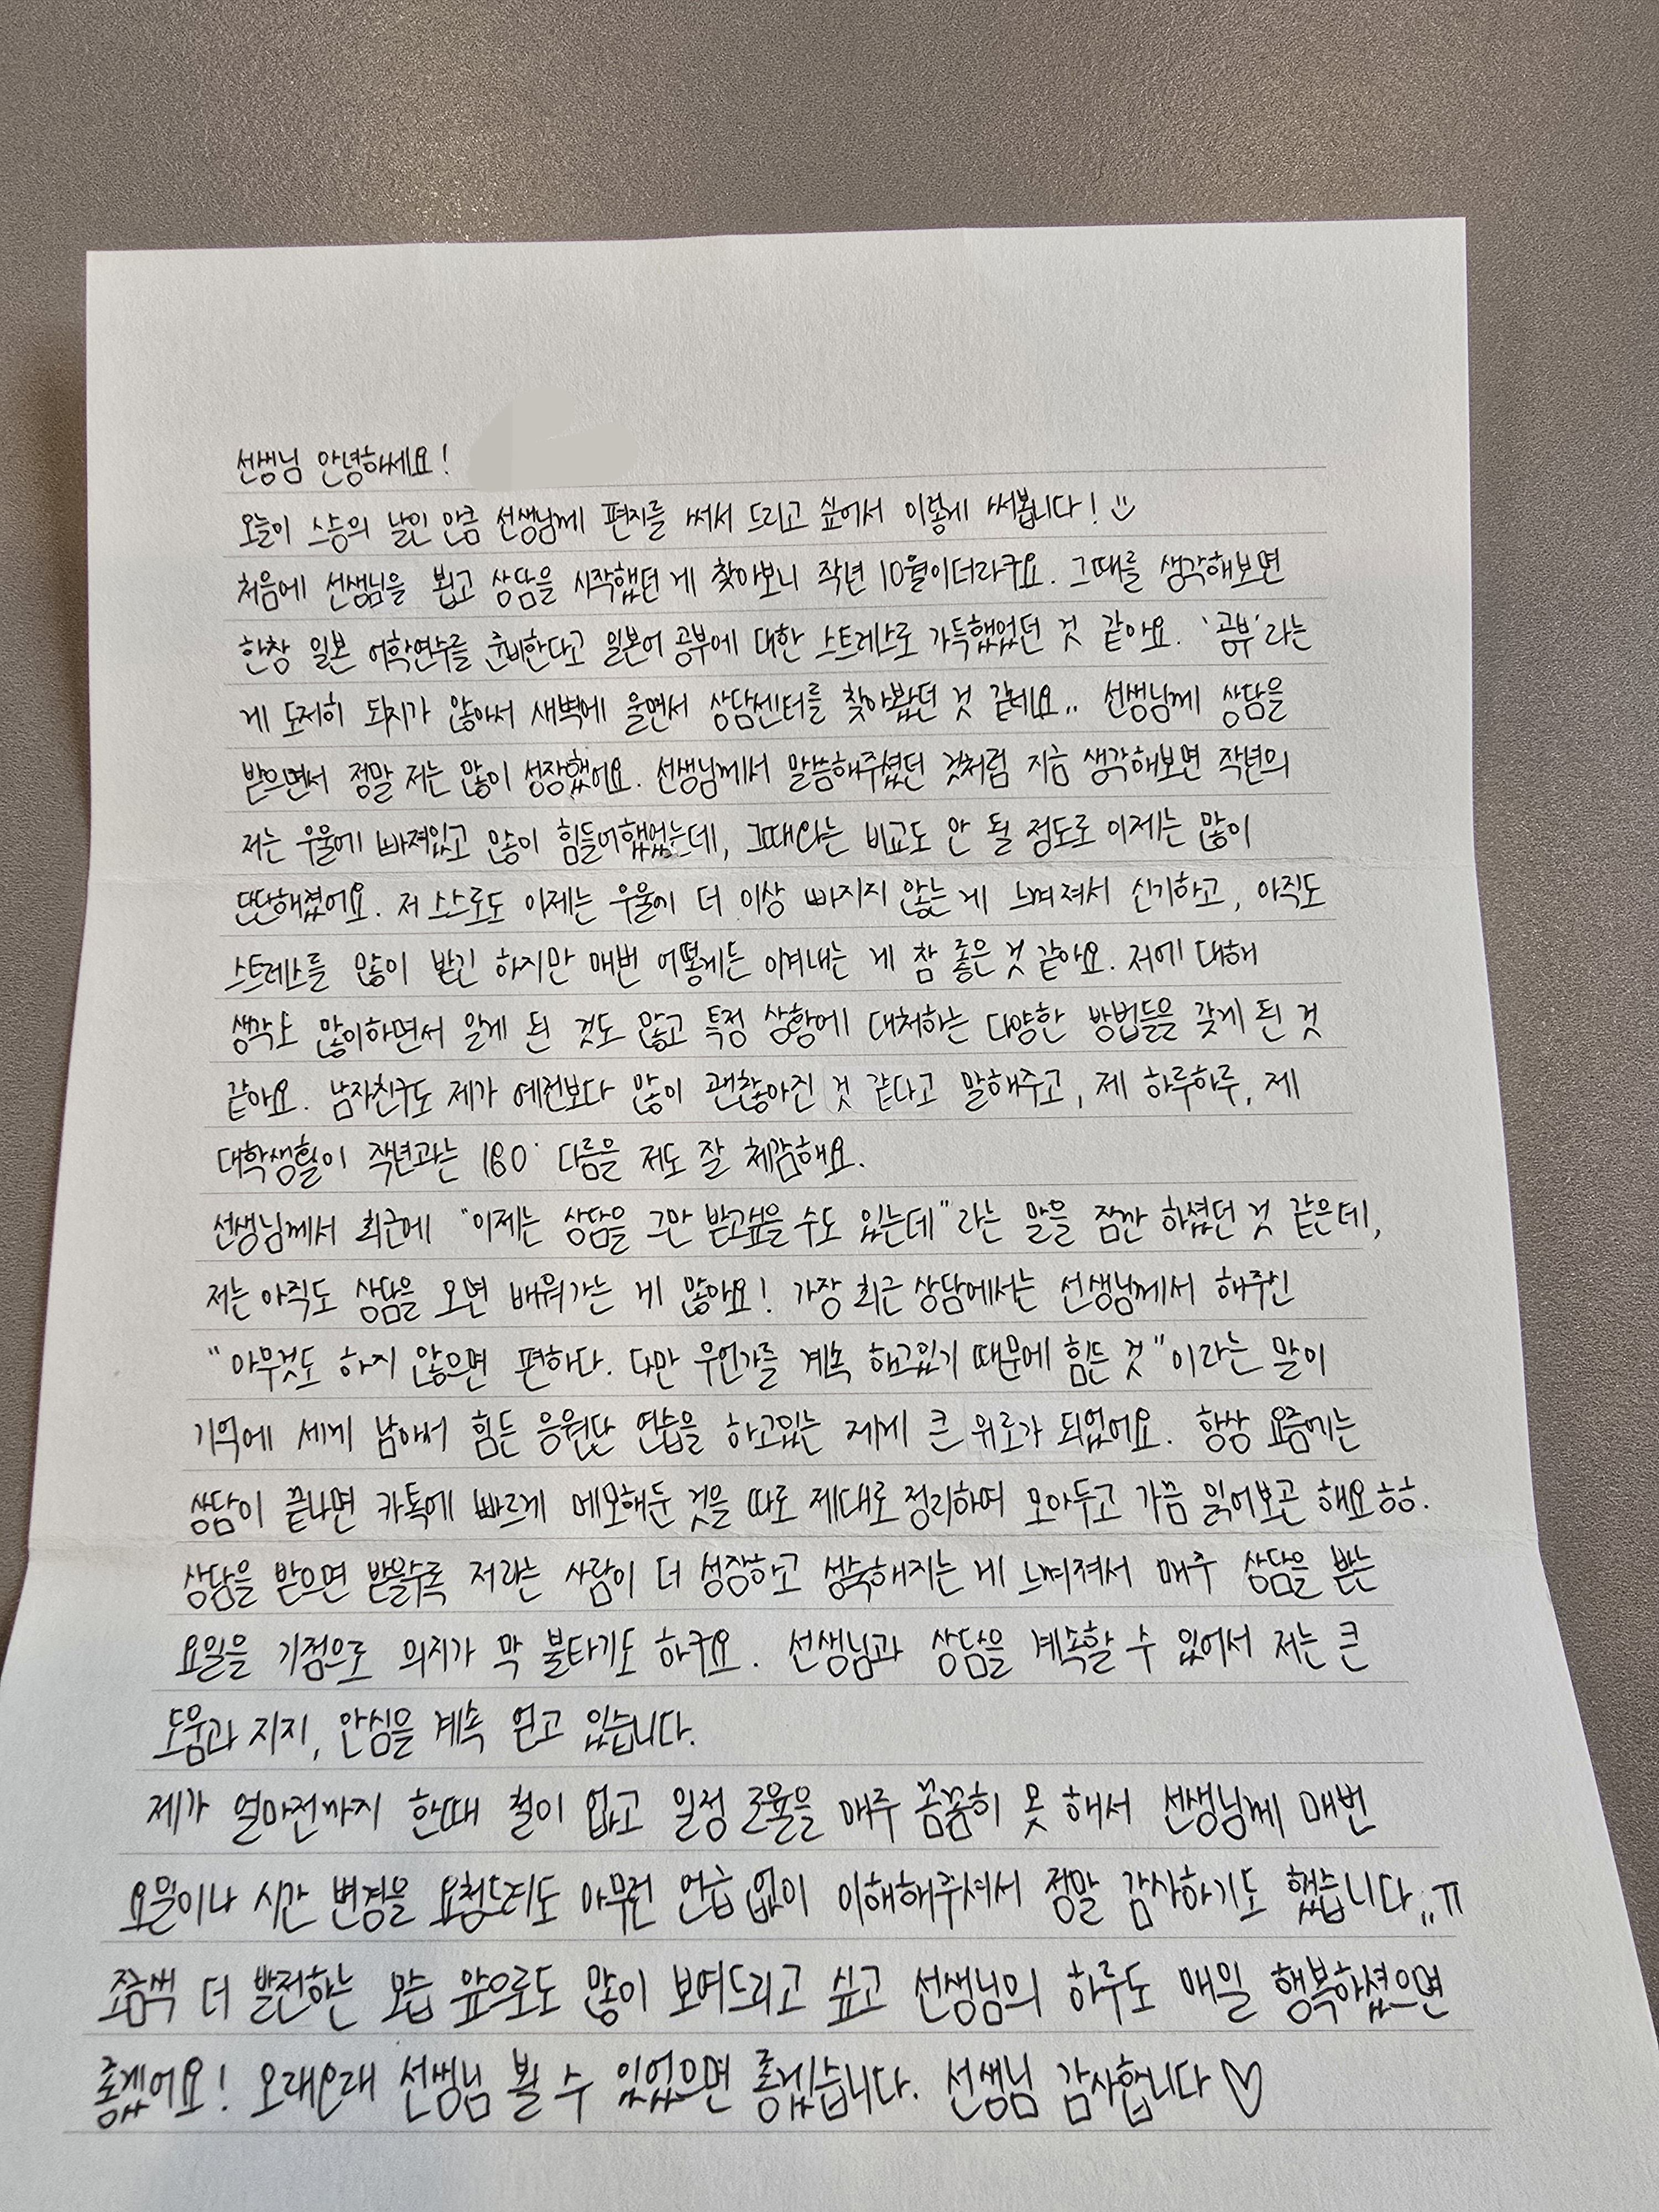 선생님 안녕하세요!
오늘이 스승의 날인 만큼 선생님께 편지를 써서 드리고 싶어서 이렇게 써봅니다! :)
처음에 선생님을 뵙고 상담을 시작했던 게 찾아보니 작년 10월이더라구요. 그때를 생각해보면
한창 일본 어학연수를 준비한다고 일본어 공부에 대한 스트레스로 가득했었던 것 같아요. '공부'라는
게 도저히 되지가 않아서 새벽에 울면서 상담센터를 찾아봤던 것 같네요.. 선생님께 상담을
받으면서 정말 저는 많이 성장했어요. 선생님께서 말씀해주셨던 것처럼 지금 생각해보면 작년의
저는 우울에 빠져있고 많이 힘들어했었는데, 그때와는 비교도 안 될 정도로 이제는 많이
단단해졌어요. 저 스스로도 이제는 우울에 더 이상 빠지지 않는 게 느껴져서 신기하고, 아직도
스트레스를 많이 받긴 하지만 매번 어떻게든 이겨내는 게 참 좋은 것 같아요. 저에 대해
생각도 많이하면서 알게 된 것도 많고 특정 상황에 대처하는 다양한 방법들을 갖게 된 것
같아요. 남자친구도 제가 예전보다 많이 괜찮아진 것 같다고 말해주고, 제 하루하루, 제
대학생활이 작년과는 180° 다름을 저도 잘 체감해요.
선생님께서 최근에 "이제는 상담을 그만 받고싶을 수도 있는데"라는 말을 잠깐 하셨던 것 같은데,
저는 아직도 상담을 오면 배워가는 게 많아요! 가장 최근 상담에서는 선생님께서 해주신
"아무것도 하지 않으면 편하다. 다만 무언가를 계속 하고있기 때문에 힘든 것"이라는 말이
기억에 세게 남아서 힘든 응원단 연습을 하고있는 제게 큰 위로가 되었어요. 항상 요즘에는
상담이 끝나면 카톡에 빠르게 메모해둔 것을 따로 제대로 정리하여 모아두고 가끔 읽어보곤 해요ㅎㅎ.
상담을 받으면 받을수록 저라는 사람이 더 성장하고 성숙해지는 게 느껴져서 매주 상담을 받는
요일을 기점으로 의지가 막 불타기도 하구요. 선생님과 상담을 계속할 수 있어서 저는 큰
도움과 지지, 안심을 계속 얻고 있습니다.
제가 얼마전까지 한때 철이 없고 일정 조율을 매주 꼼꼼히 못 해서 선생님께 매번
요일이나 시간 변경을 요청드려도 아무런 언급 없이 이해해주셔서 정말 감사하기도 했습니다,,ㅠ
조금씩 더 발전하는 모습 앞으로도 많이 보여드리고 싶고 선생님의 하루도 매일 행복하셨으면
좋겠어요! 오래오래 선생님 뵐 수 있었으면 좋겠습니다. 선생님 감사합니다♡